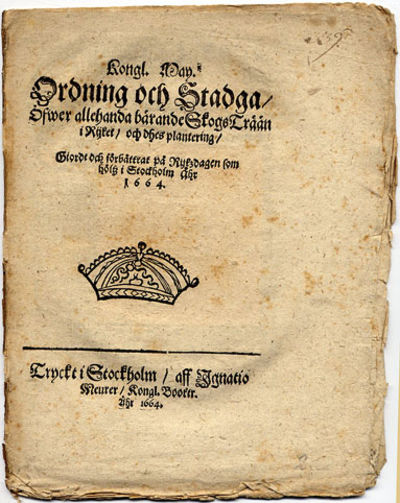 Kongl. May.
Ordning och Stadga/
Öfwer allehanda bärande SkogsTrään
i Rijket/ och dhes plantering/
Giordt och förbättrat på Rijksdagen som
höltz i Stockholm Åhr
1664.
Tryckt i Stockholm/ aff Ignatio
Meurer/ Kongl. Booktr.
Åhr 1664.